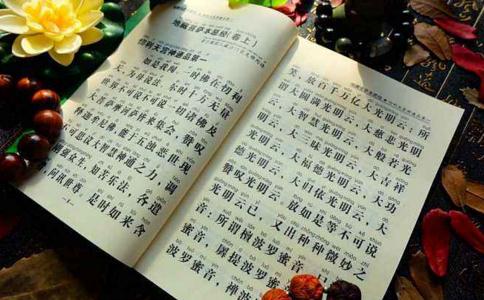 地藏菩萨本愿经(卷上)
忉利天宫神通品第一
如是我闻。一时佛在忉利
天，为母说法。尔时十方无量
世界不可说不可说一切诸佛及
大菩萨摩诃萨皆来集会，赞叹
释迦牟尼佛，能于五浊恶世现
不可思议大智慧神通之力，调
伏刚强众生，知苦乐法，各遣
侍者，问讯世尊。是时如来含
-1-
笑，放百千万亿大光明云，所
谓大圆满光明云、大慈悲光明
云、大智慧光明云、大般若光
明云、大三昧光明云、大吉祥
光明云、大福德光明云、大功
德光明云、大归依光明云、大
赞叹光明云，放如是等不可说
光明云已，又出种种微妙之
音，所谓檀波罗蜜音、尸波罗
蜜音、羼提波罗蜜音、
波罗蜜音、禅波